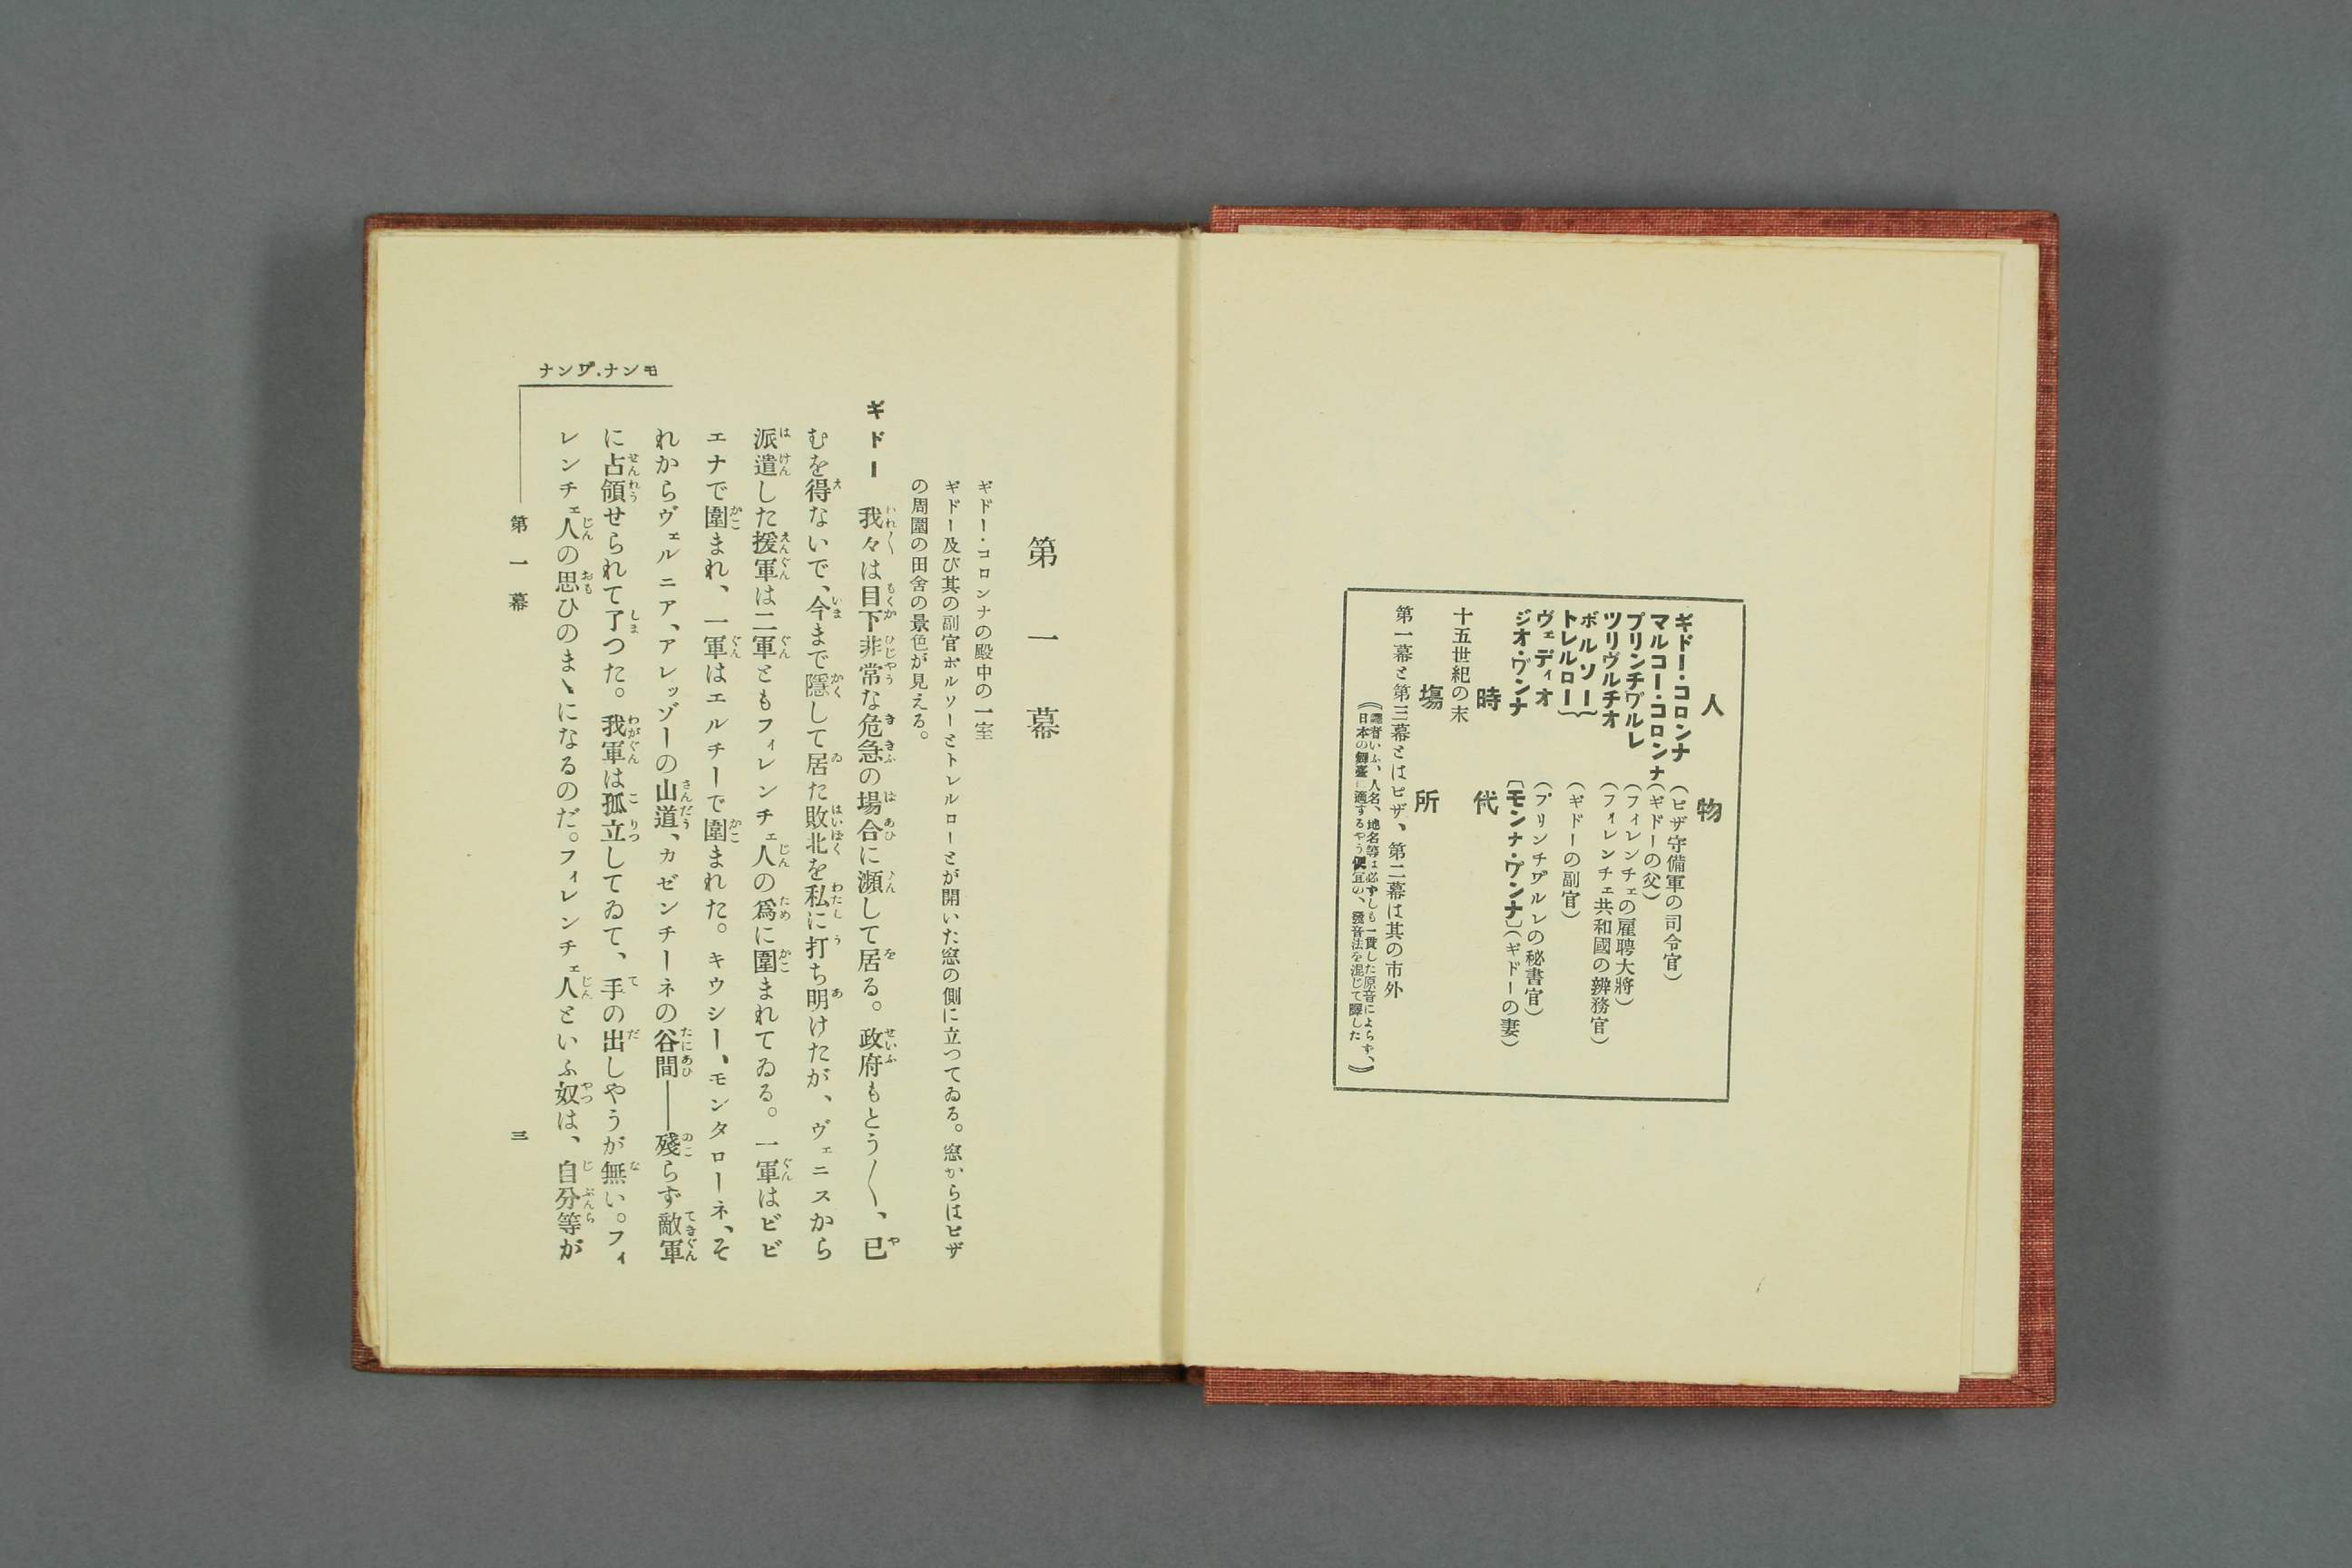 人物
ギドー・コロンナ（ピザ守備軍の司令官）
マルコー・コロンナ（ギドーの父）
プリンチワ゛ルレ（フィレンチェの雇聘大將）
ツリヴルチオ（フィレンチェ共和國の辨務官）
ボルソー
トレルロー｝（ギドーの副官）
ヴェディオ（プリンチワ゛ルレの秘書官）
ジオ・ワ゛ンナ〔モンナ・ワ゛ンナ〕（ギドーの妻）
時代
十五世紀の末
塲所
第一幕と第三幕とはピザ、第二幕は其の市外
《譯者いふ、人名、地名等は必ずしも一貫した原音によらず、
日本の舞臺に適するやう便宜の、發音法を混じて譯した》
第一幕
ギドー・コロンナの殿中の一室
ギドー及び其の副官ボルソーとトレルローとが開いた窓の側に立つてゐる。窓からはピザ
の周圍の田舍の景色が見える。
ギドー　我々は目下非常な危急の場合に瀕して居る。政府もとう〳〵、已
むを得ないで、今まで隱して居た敗北を私に打ち明けたが、ヴェニスから
派遣した援軍は二軍ともフィレンチェ人の爲に圍まれてゐる。一軍はビビ
エナで圍まれ、一軍はエルチーで圍まれた。キウシー、モンタローネ、そ
れからヴェルニア、アレッゾーの山道、カゼンチーネの谷間――殘らず敵軍
に占領せられて了つた。我軍は孤立してゐて、手の出しやうが無い。フィ
レンチェ人の思ひのまゝになるのだ。フィレンチェ人といふ奴は、自分等が
モンナ・ワ゛ンナ
第一幕
三